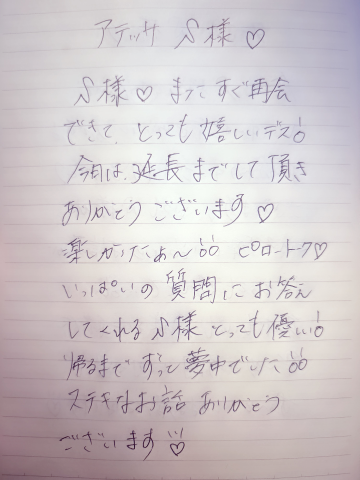 アテッサ S様♡
S様♡ またすぐ再会
できて、とっても嬉しいデス!
今日は、延長までして頂き
ありがとうございます♡
楽しかったぁ〜!! ピロートーク♡
いっぱいの質問にお答え
してくれるS様とっても優しい!
帰るまでずっと夢中でした!!
ステキなお話ありがとう
ございます!!♡